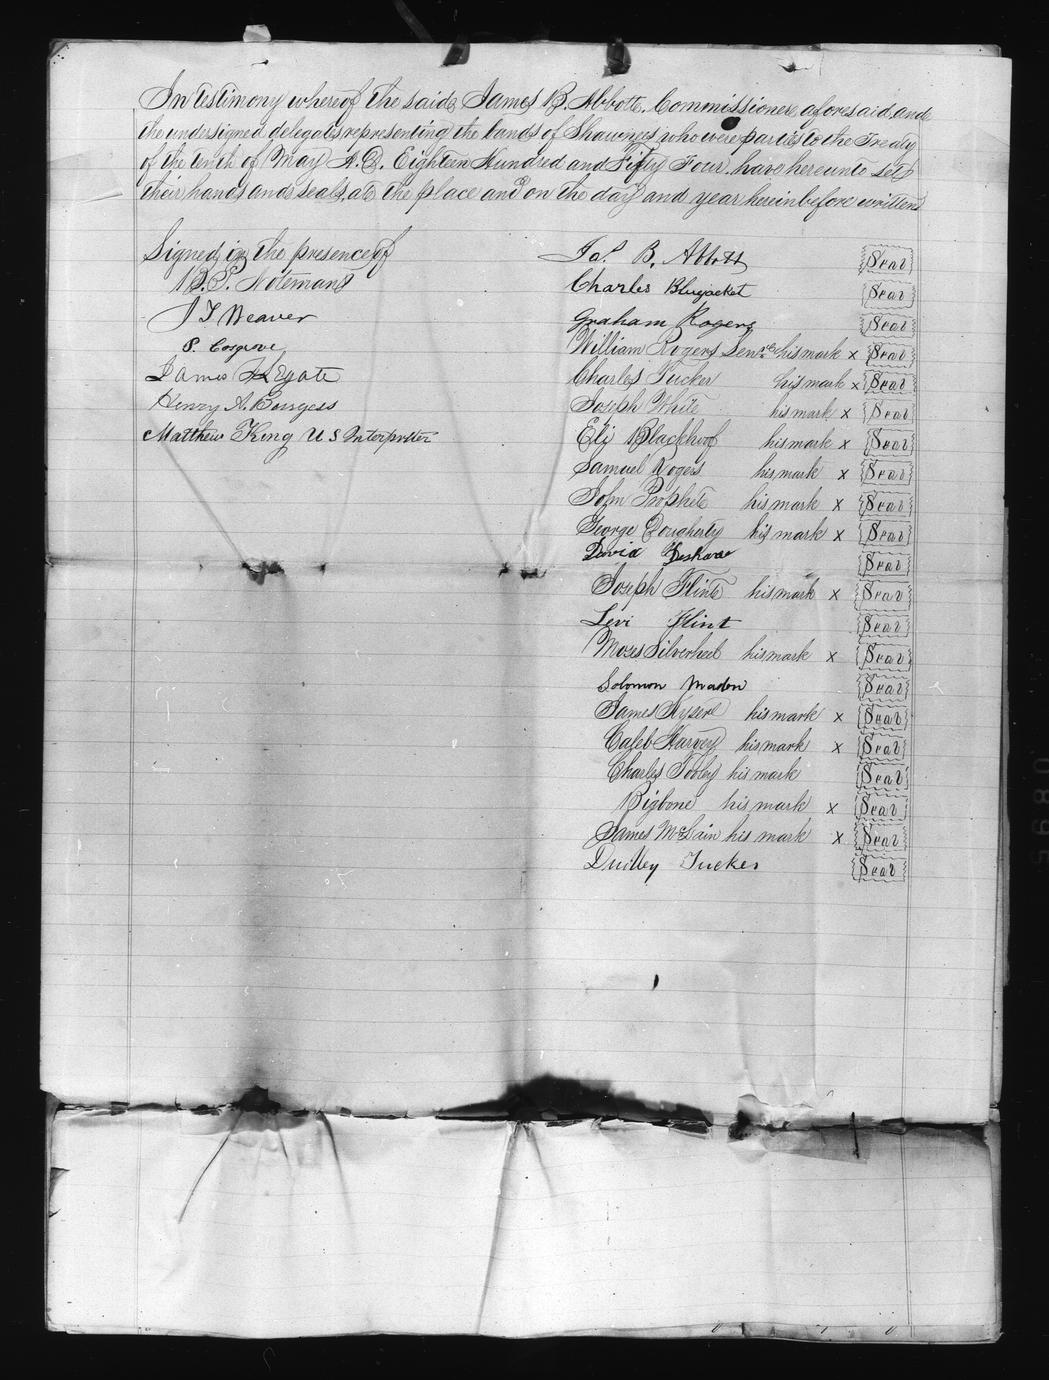 In testimony whereof the said James B. Abbott, Commissioner aforesaid, and
the undersigned delegates representing the bands of Shawnees who were parties to the Treaty
of the tenth of May A.D. Eighteen Hundred and Fifty Four, have hereunto set
their hands and seals, at the place and on the day and year hereinbefore written
Signed in the presence of
B.S. Noteman
J T Weaver
P. Cosgrove
James H Legate
Henry A. Burgess
Matthew King U S Interpreter
Jas. B. Abbott Seal
Charles Bluejacket Seal
Graham Rogers Seal
William Rogers Senr his mark x Seal
Charles Tucker his mark x Seal
Joseph White his mark x Seal
Eli Blackhoof his mark x Seal
Samuel Rogers his mark x Seal
John Prophet his mark x Seal
George Dougherty his mark x Seal
David Seal
Joseph Flint his mark x Seal
Levi Flint Seal
Moses Silverheel his mark x Seal
Solomon Maden Seal
James Kyser his mark x Seal
Caleb Harvey his mark x Seal
Charles Tooley his mark Seal
Bigbone his mark x Seal
James McLain his mark x Seal
Dudley Tucker Seal
0895